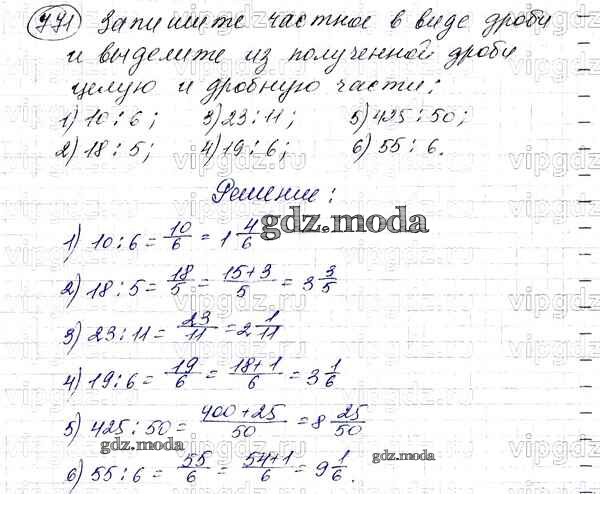 771 Запишите частное в виде дроби
и выделите из полученной дроби
целую и дробную части:
1) 10:6; 3) 23:11; 5) 425:50;
2) 18:5; 4) 19:6; 6) 55:6.
Решение:
1) 10:6 = 10/6 = 1 4/6
gdz.moda
2) 18:5 = 18/5 = (15+3)/5 = 3 3/5
3) 23:11 = 23/11 = 2 1/11
4) 19:6 = 19/6 = (18+1)/6 = 3 1/6
5) 425:50 = (400+25)/50 = 8 25/50
gdz.moda
gdz.moda
6) 55:6 = 55/6 = (54+1)/6 = 9 1/6.